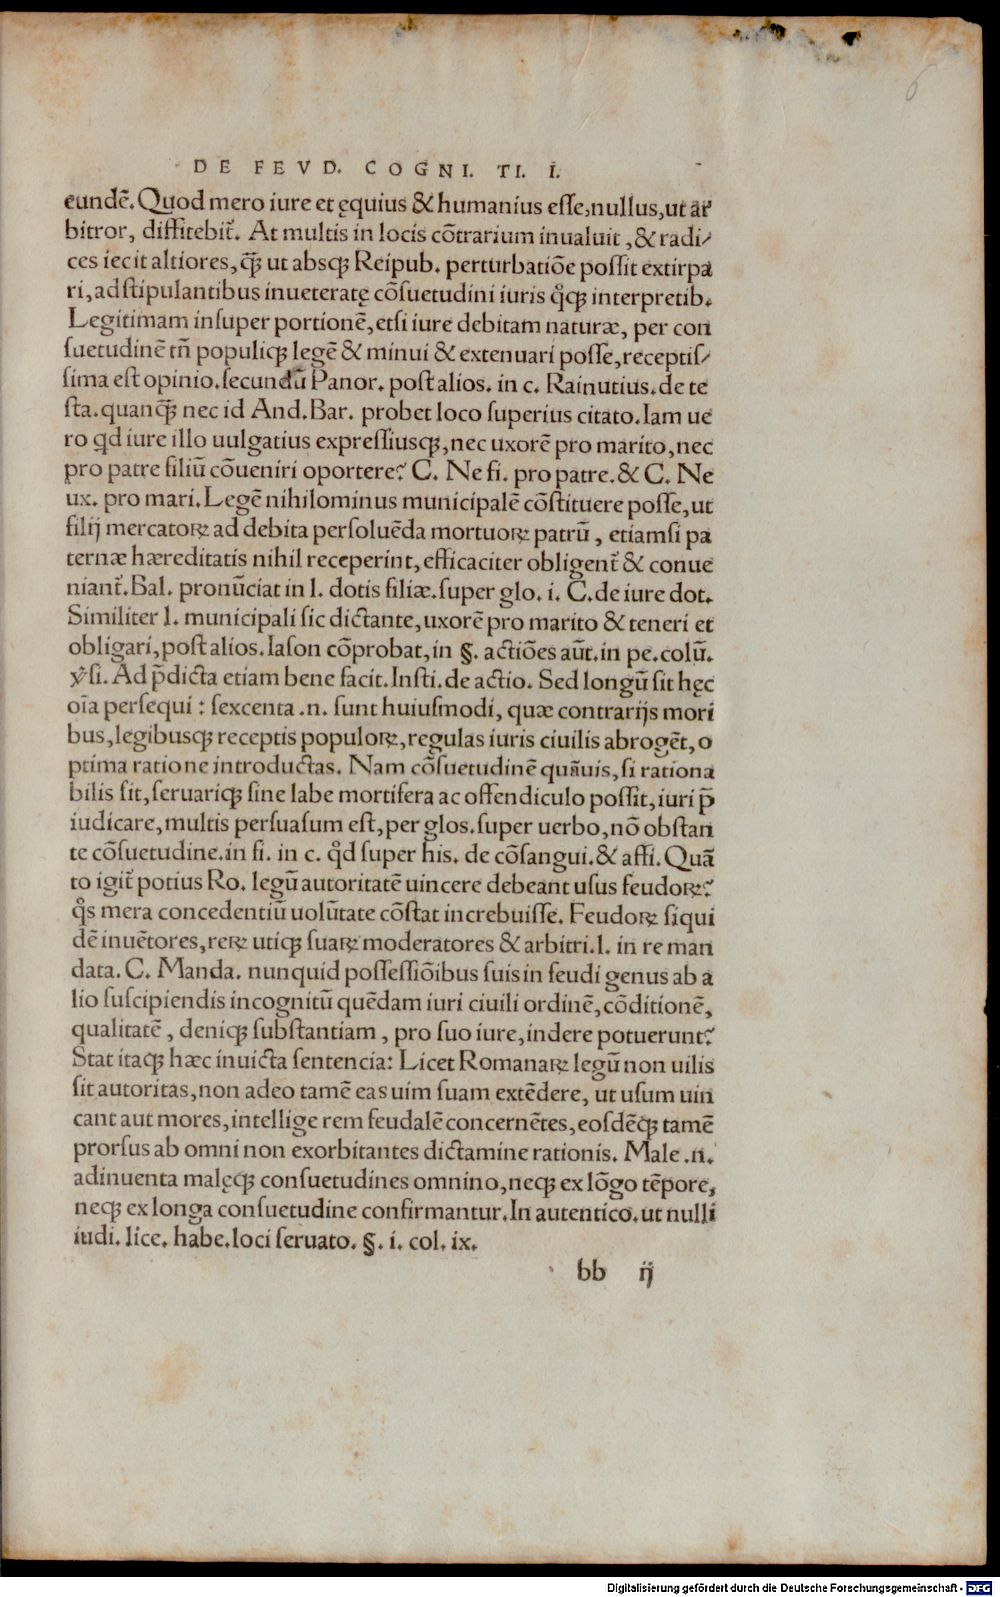 DE FEVD. COGNI. TI. I.
6
eundē. Quod mero iure et ęquius & humanius esse, nullus, ut ar
bitror, diffitebit̃. At multis in locis cōtrarium inualuit, & radi/
ces iecit altiores, ꝙ̃ ut absqꝫ Reipub. perturbatiōe possit extirpa
ri, adstipulantibus inueteratę cōsuetudini iuris qͦꝫ interpretib.
Legitimam insuper portionē, etsi iure debitam naturæ, per con
suetudinē tñ populiqꝫ legē & minui & extenuari posse, receptis/
sima est opinio. secundū Panor. post alios. in c. Rainutius. de te
sta. quanqꝫ̃ nec id And. Bar. probet loco superius citato. Iam ue
ro qd iure illo uulgatius expressiusqꝫ, nec uxorē pro marito, nec
pro patre filiū cōueniri oportere? C. Ne fi. pro patre. & C. Ne
ux. pro mari. Legē nihilominus municipalē cōstituere posse, ut
filij mercatoꝝ ad debita persoluēda mortuoꝝ patrū, etiamsi pa
ternæ hæreditatis nihil receperint, efficaciter obligent̃ & conue
niant̃. Bal. pronūciat in l. dotis filiæ. super glo. i. C. de iure dot.
Similiter l. municipali sic dictante, uxorē pro marito & teneri et
obligari, post alios. Iason cōprobat, in §. actiōes aūt. in pe. colū.
ꝟsi. Ad p̄dicta etiam bene facit. Insti. de actio. Sed longū sit hęc
oīa persequi: sexcenta .n. sunt huiusmodi, quæ contrarijs mori
bus, legibusqꝫ receptis populoꝝ, regulas iuris ciuilis abrogēt, o
ptima ratione introductas. Nam cōsuetudinē quāuis, si rationa
bilis sit, seruariqꝫ sine labe mortifera ac offendiculo possit, iuri p̄
iudicare, multis persuasum est, per glos. super uerbo, nō obstan
te cōsuetudine. in fi. in c. qͦd super his. de cōsangui. & affi. Quā
to igit̃ potius Ro. legū autoritatē uincere debeant usus feudoꝝ?
qͦs mera concedentiū uolūtate cōstat increbuisse. Feudoꝝ siqui
dē inuētores, reꝝ utiqꝫ suaꝝ moderatores & arbitri. l. in re man
data. C. Manda. nunquid possessiōibus suis in feudi genus ab a
lio suscipiendis incognitū quēdam iuri ciuili ordinē, cōditionē,
qualitatē, deniqꝫ substantiam, pro suo iure, indere potuerunt?
Stat itaqꝫ hæc inuicta sentencia: Licet Romanaꝝ legū non uilis
sit autoritas, non adeo tamē eas uim suam extēdere, ut usum uin
cant aut mores, intellige rem feudalē concernētes, eosdēqꝫ tamē
prorsus ab omni non exorbitantes dictamine rationis. Male .n.
adinuenta malęqꝫ consuetudines omnino, neqꝫ ex lōgo tēpore,
neqꝫ ex longa consuetudine confirmantur. In autentico. ut nulli
iudi. lice. habe. loci seruato. §. i. col. ix.
bb ij
Digitalisierung gefördert durch die Deutsche Forschungsgemeinschaft - DFG